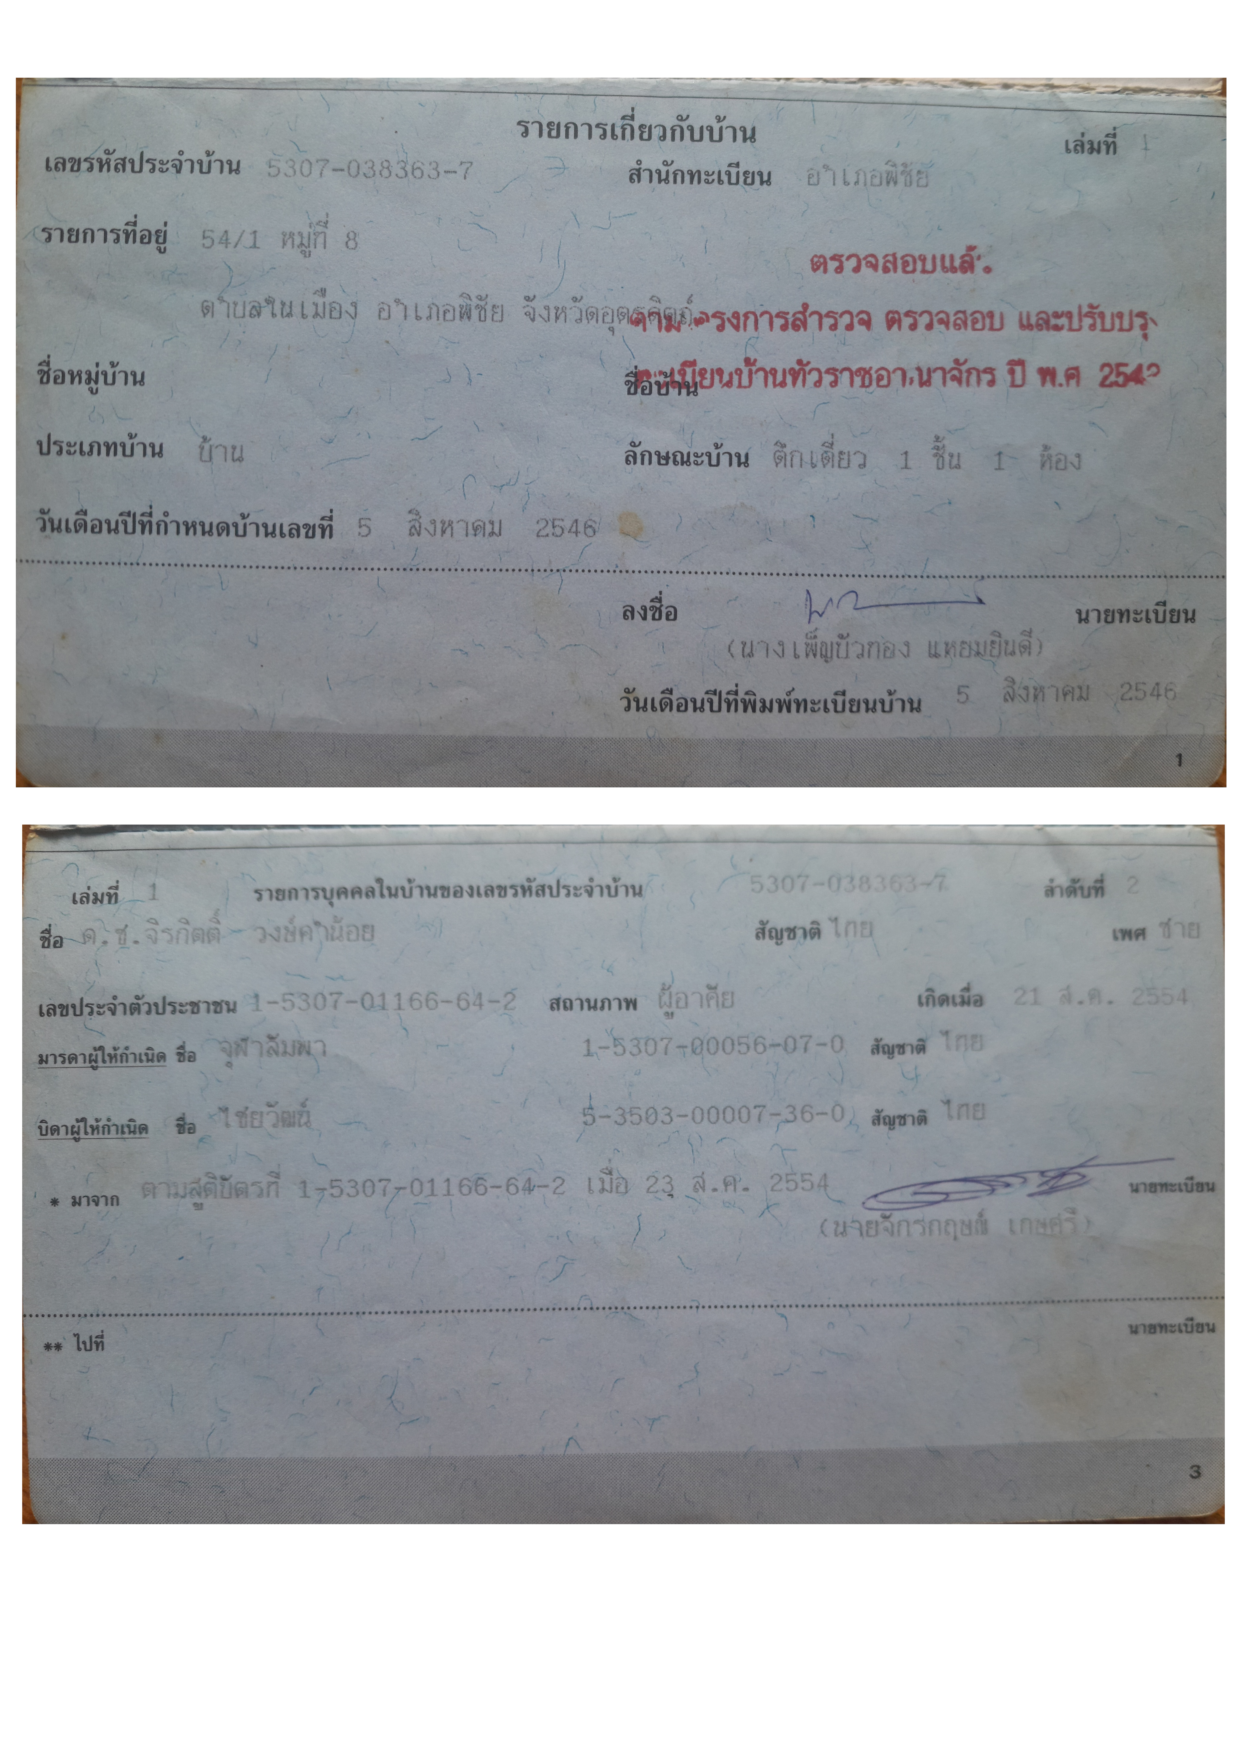 รายการเกี่ยวกับบ้าน
เล่มที่ 1
เลขรหัสประจำบ้าน 5307-038363-7 สำนักทะเบียน อำเภอพิชัย
รายการที่อยู่ 54/1 หมู่ที่ 8
ตรวจสอบแล้ว
ตำบลในเมือง อำเภอพิชัย จังหวัดอุตรดิตถ์
ตามโครงการสำรวจ ตรวจสอบ และปรับปรุง
ชื่อหมู่บ้าน ชื่อบ้าน
ทะเบียนบ้านทั่วราชอาณาจักร ปี พ.ศ 254
ประเภทบ้าน บ้าน ลักษณะบ้าน ตึกเดี่ยว 1 ชั้น 1 ห้อง
วันเดือนปีที่กำหนดบ้านเลขที่ 5 สิงหาคม 2546
ลงชื่อ นายทะเบียน
(นางเพ็ญบัวทอง แหยมยินดี)
วันเดือนปีที่พิมพ์ทะเบียนบ้าน 5 สิงหาคม 2546
1
เล่มที่ 1 รายการบุคคลในบ้านของเลขรหัสประจำบ้าน 5307-038363-7 ลำดับที่ 2
ชื่อ ด.ช.จิรกิตติ์ วงษ์คำน้อย สัญชาติ ไทย เพศ ชาย
เลขประจำตัวประชาชน 1-5307-01166-64-2 สถานภาพ ผู้อาศัย เกิดเมื่อ 21 ส.ค. 2554
มารดาผู้ให้กำเนิด ชื่อ จุฬาลัมพา 1-5307-00056-07-0 สัญชาติ ไทย
บิดาผู้ให้กำเนิด ชื่อ ไชยวัฒน์ 5-3503-00007-36-0 สัญชาติ ไทย
* มาจาก ตามสูติบัตรที่ 1-5307-01166-64-2 เมื่อ 23 ส.ค. 2554 นายทะเบียน
(นายจักรกฤษณ์ เกษศรี)
** ไปที่ นายทะเบียน
3